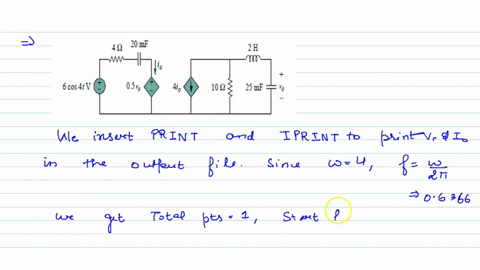 ⇒
4 Ω 20 mF 2 H
6 cos 4t V 0.5v₀ i₀ 4i₀ 10 Ω 25 mF + v₀ −
We insert PRINT and IPRINT to print V₀ & I₀
in the output file. Since ω=4, f = ω/2π
⇒ 0.6366
We get Total pts = 1, Start f